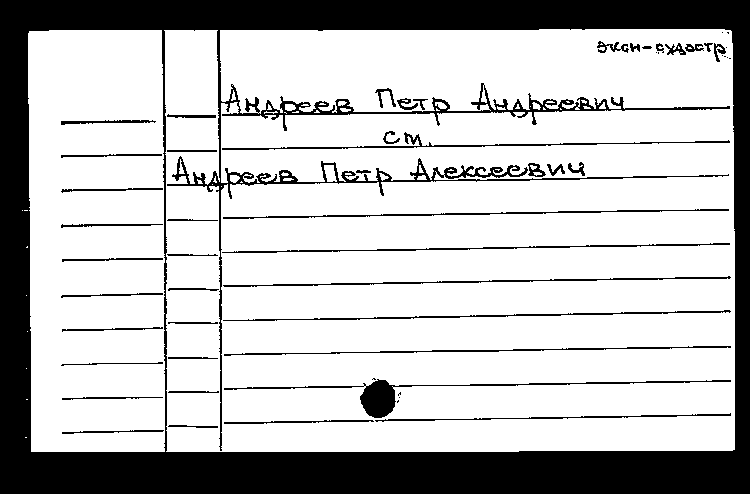 экон-
Андреев Петр Андреевич
см.
Андреев Петр Алексеевич